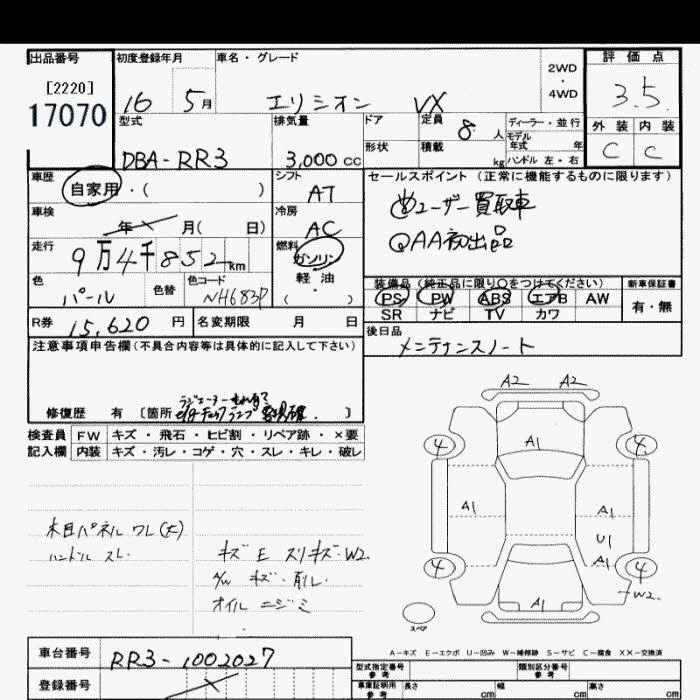 出品番号 初度登録年月 車名・グレード 評価点
[2220] 2WD・4WD
17070 16 5月 エリシオン VX 3.5
型式 排気量 ドア 定員 8人 ディーラー・並行 外装 内装
形状 積載 kg モデル年式 年 C C
DBA-RR3 3,000cc ハンドル 左・右
車歴 自家用・( ) シフト AT セールスポイント (正常に機能するものに限ります)
車検 年 月( 日) 冷房 AC ユーザー買取車
走行 9万4千852km 燃料 ガソリン QAA初出品
色 パール 色替 色コード NH683P 軽油 ( )
装備品(純正品に限り○をつけてください) 新車保証書
PS PW ABS エアB AW 有・無
SR ナビ TV カワ
R券 15,620円 名変期限 月 日 後日品
メンテナンスノート
注意事項申告欄(不具合内容等は具体的に記入して下さい)
修復歴 有 [箇所 ]
検査員 FW キズ・飛石・ヒビ割・リペア跡・×要
記入欄 内装 キズ・汚レ・コゲ・穴・スレ・キレ・破レ
A2 A2
A1
4 4
A1 A1
U1
A1
4 4
W2
A1
木目パネル ワレ(大)
ハンドル スレ
キズ E スリキズ W2
キズ・削レ
オイル ニジミ
スペア
A-キズ E-エクボ U-凹み W-補修跡 S-サビ C-腐食 XX-交換済
車台番号 RR3-1002027
登録番号
型式指定番号 参考 類別区分番号 参考
車庫証明用 参考 長さ cm 幅 cm 高さ cm